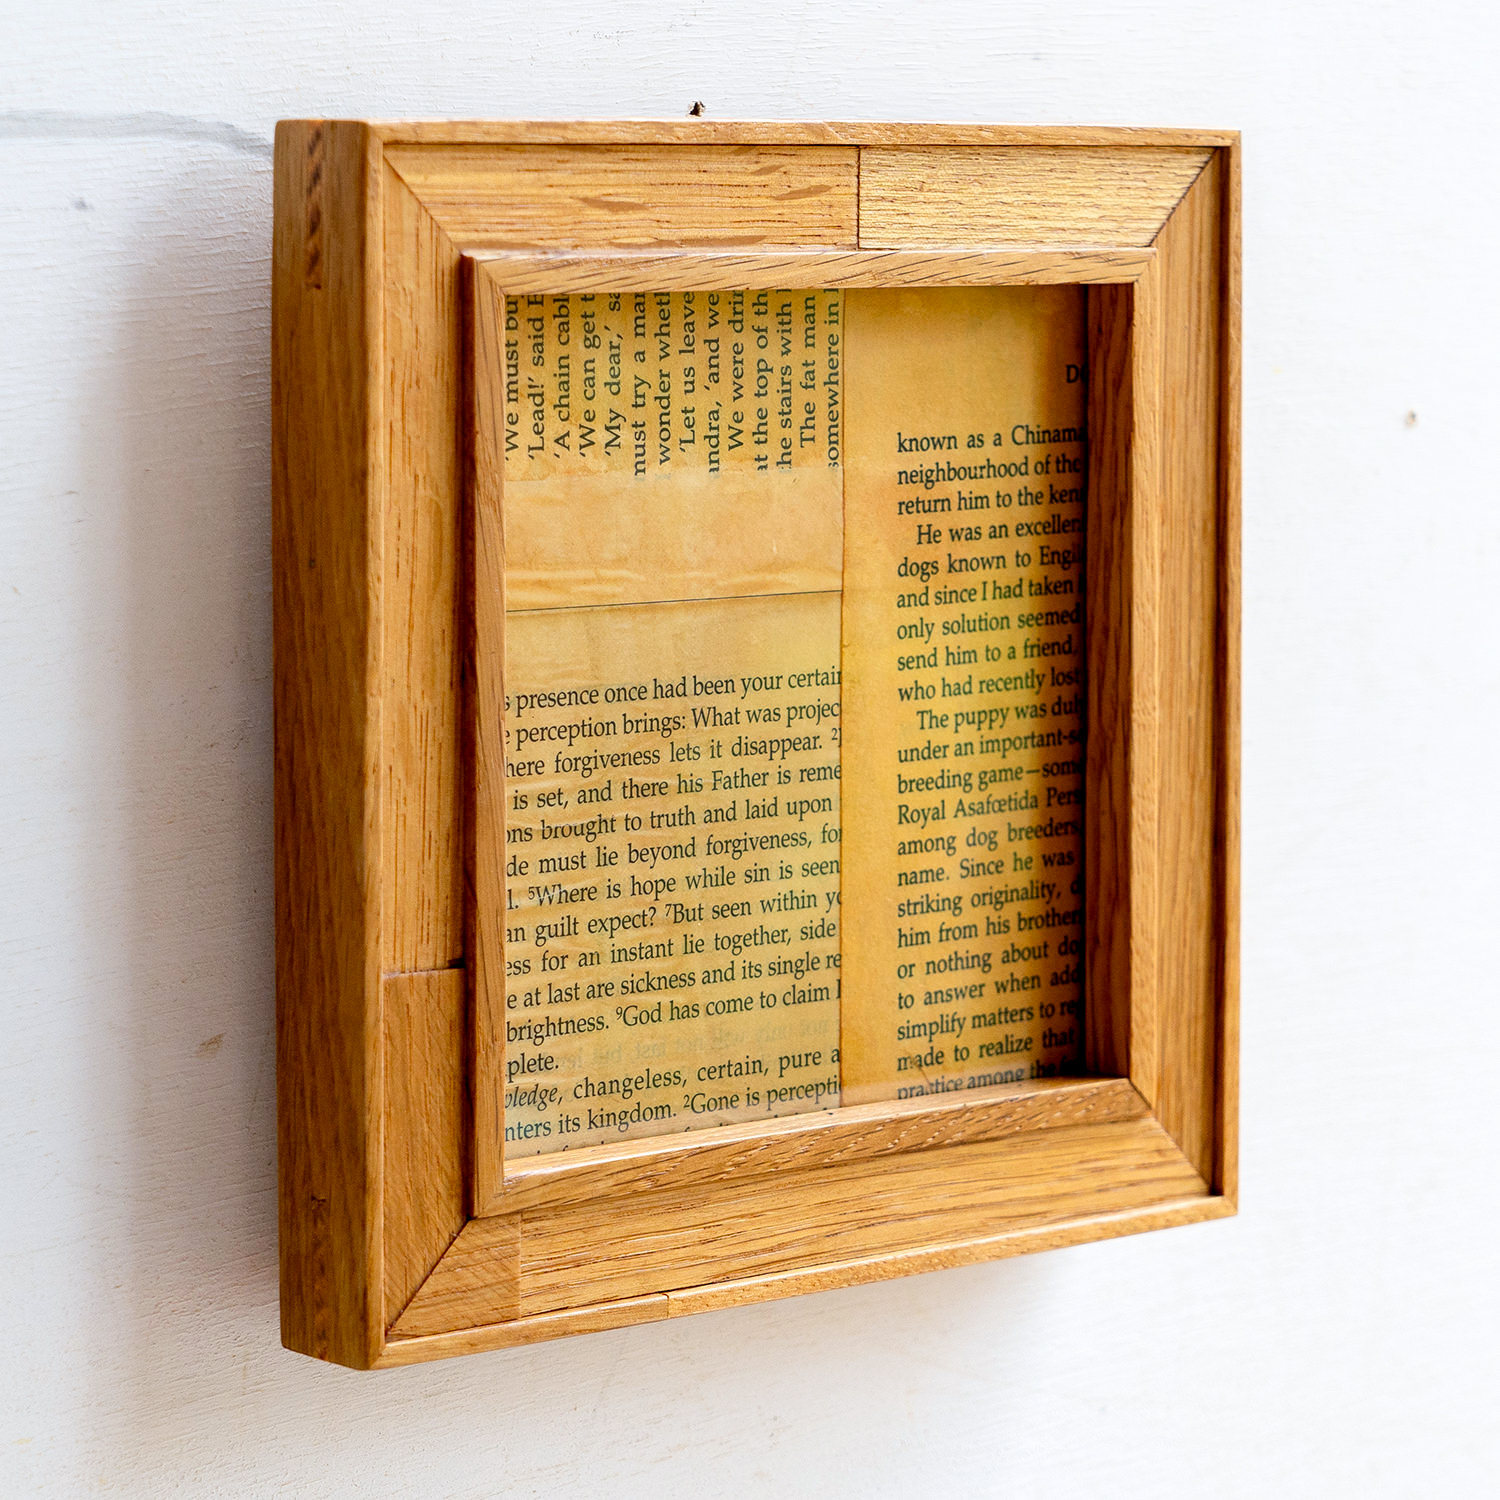 'We must bu
'Lead!' said E
'A chain cabl
'We can get t
'My dear,' sa
must try a mar
wonder wheth
'Let us leave
andra, 'and we
We were drin
at the top of th
the stairs with
The fat man
somewhere in
s presence once had been your certain
e perception brings: What was projec
here forgiveness lets it disappear. ²
is set, and there his Father is reme
ons brought to truth and laid upon
de must lie beyond forgiveness, for
l. ⁵Where is hope while sin is seen
an guilt expect? ⁷But seen within yo
ess for an instant lie together, side
e at last are sickness and its single re
brightness. ⁹God has come to claim
plete.
ledge, changeless, certain, pure a
nters its kingdom. ²Gone is percepti
D
known as a Chinama
neighbourhood of the
return him to the ken
He was an excellen
dogs known to Engl
and since I had taken
only solution seemed
send him to a friend,
who had recently lost
The puppy was dul
under an important-s
breeding game—som
Royal Asafœtida Pers
among dog breeders
name. Since he was
striking originality,
him from his brother
or nothing about do
to answer when add
simplify matters to re
made to realize that
practice among the